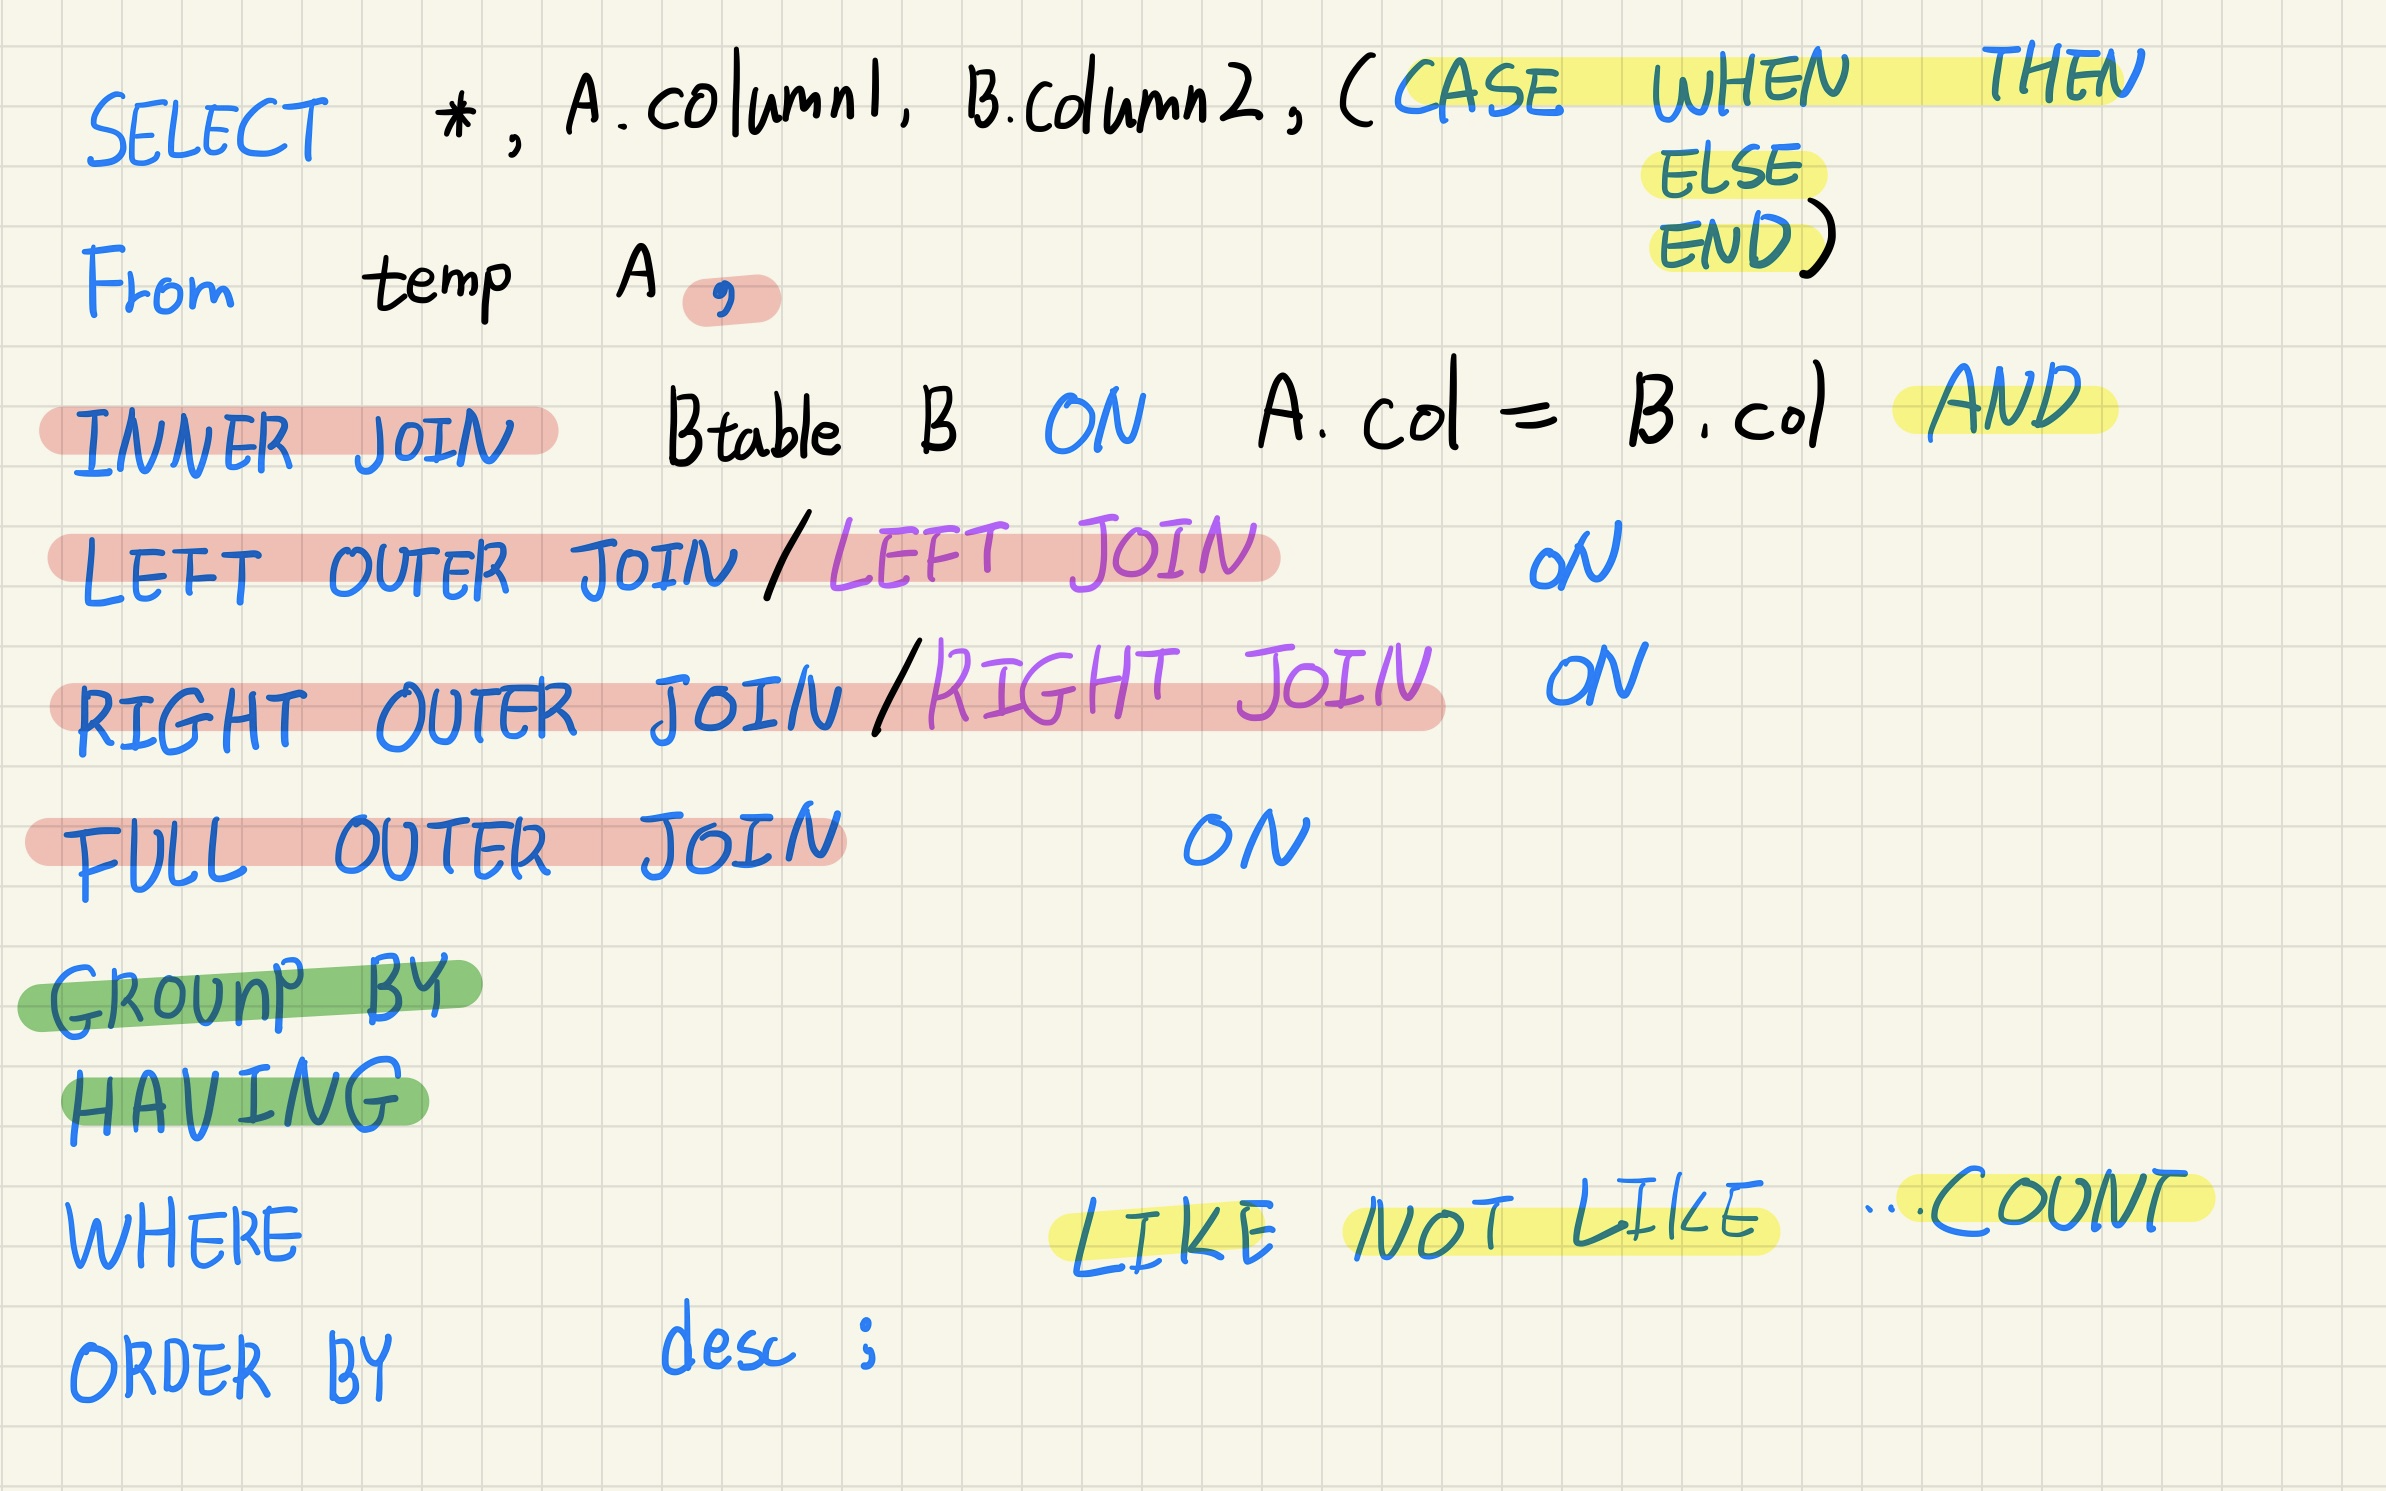 SELECT *, A.column1, B.column2, (CASE WHEN THEN
ELSE
END)
From temp A ,
INNER JOIN Btable B ON A.col = B.col AND
LEFT OUTER JOIN / LEFT JOIN ON
RIGHT OUTER JOIN / RIGHT JOIN ON
FULL OUTER JOIN ON
GROUnP BY
HAVING
WHERE LIKE NOT LIKE ... COUNT
ORDER BY desc ;